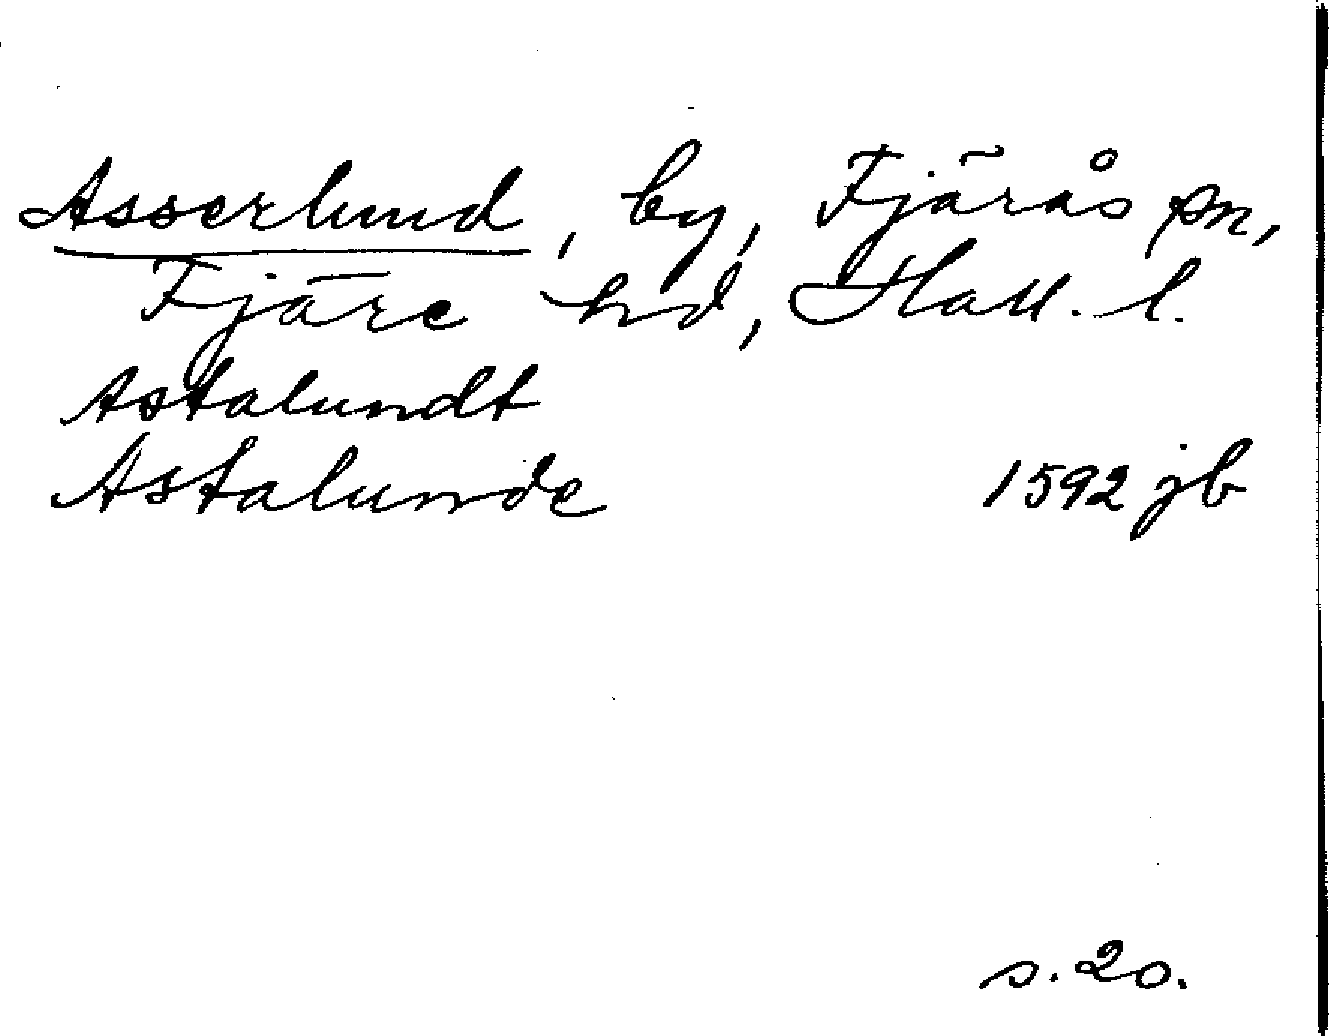 Asserlund, by, Fjärås sn,
Fjäre hd, Hall. l.
Astalundt
Astalunde 1592 jb
s. 20.